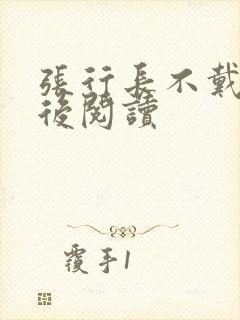 張行長不戴
後閱讀
覆手1